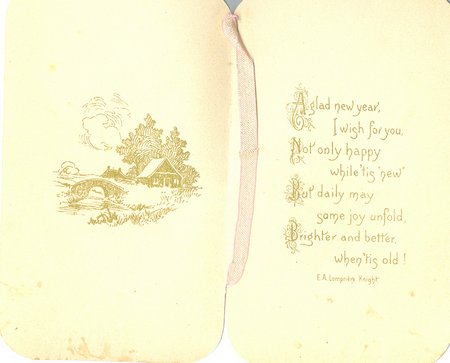 A glad new year,
I wish for you,
Not only happy
while 'tis "new"
But daily may
some joy unfold,
Brighter and better,
when 'tis old!
E.A. Lempriere Knight